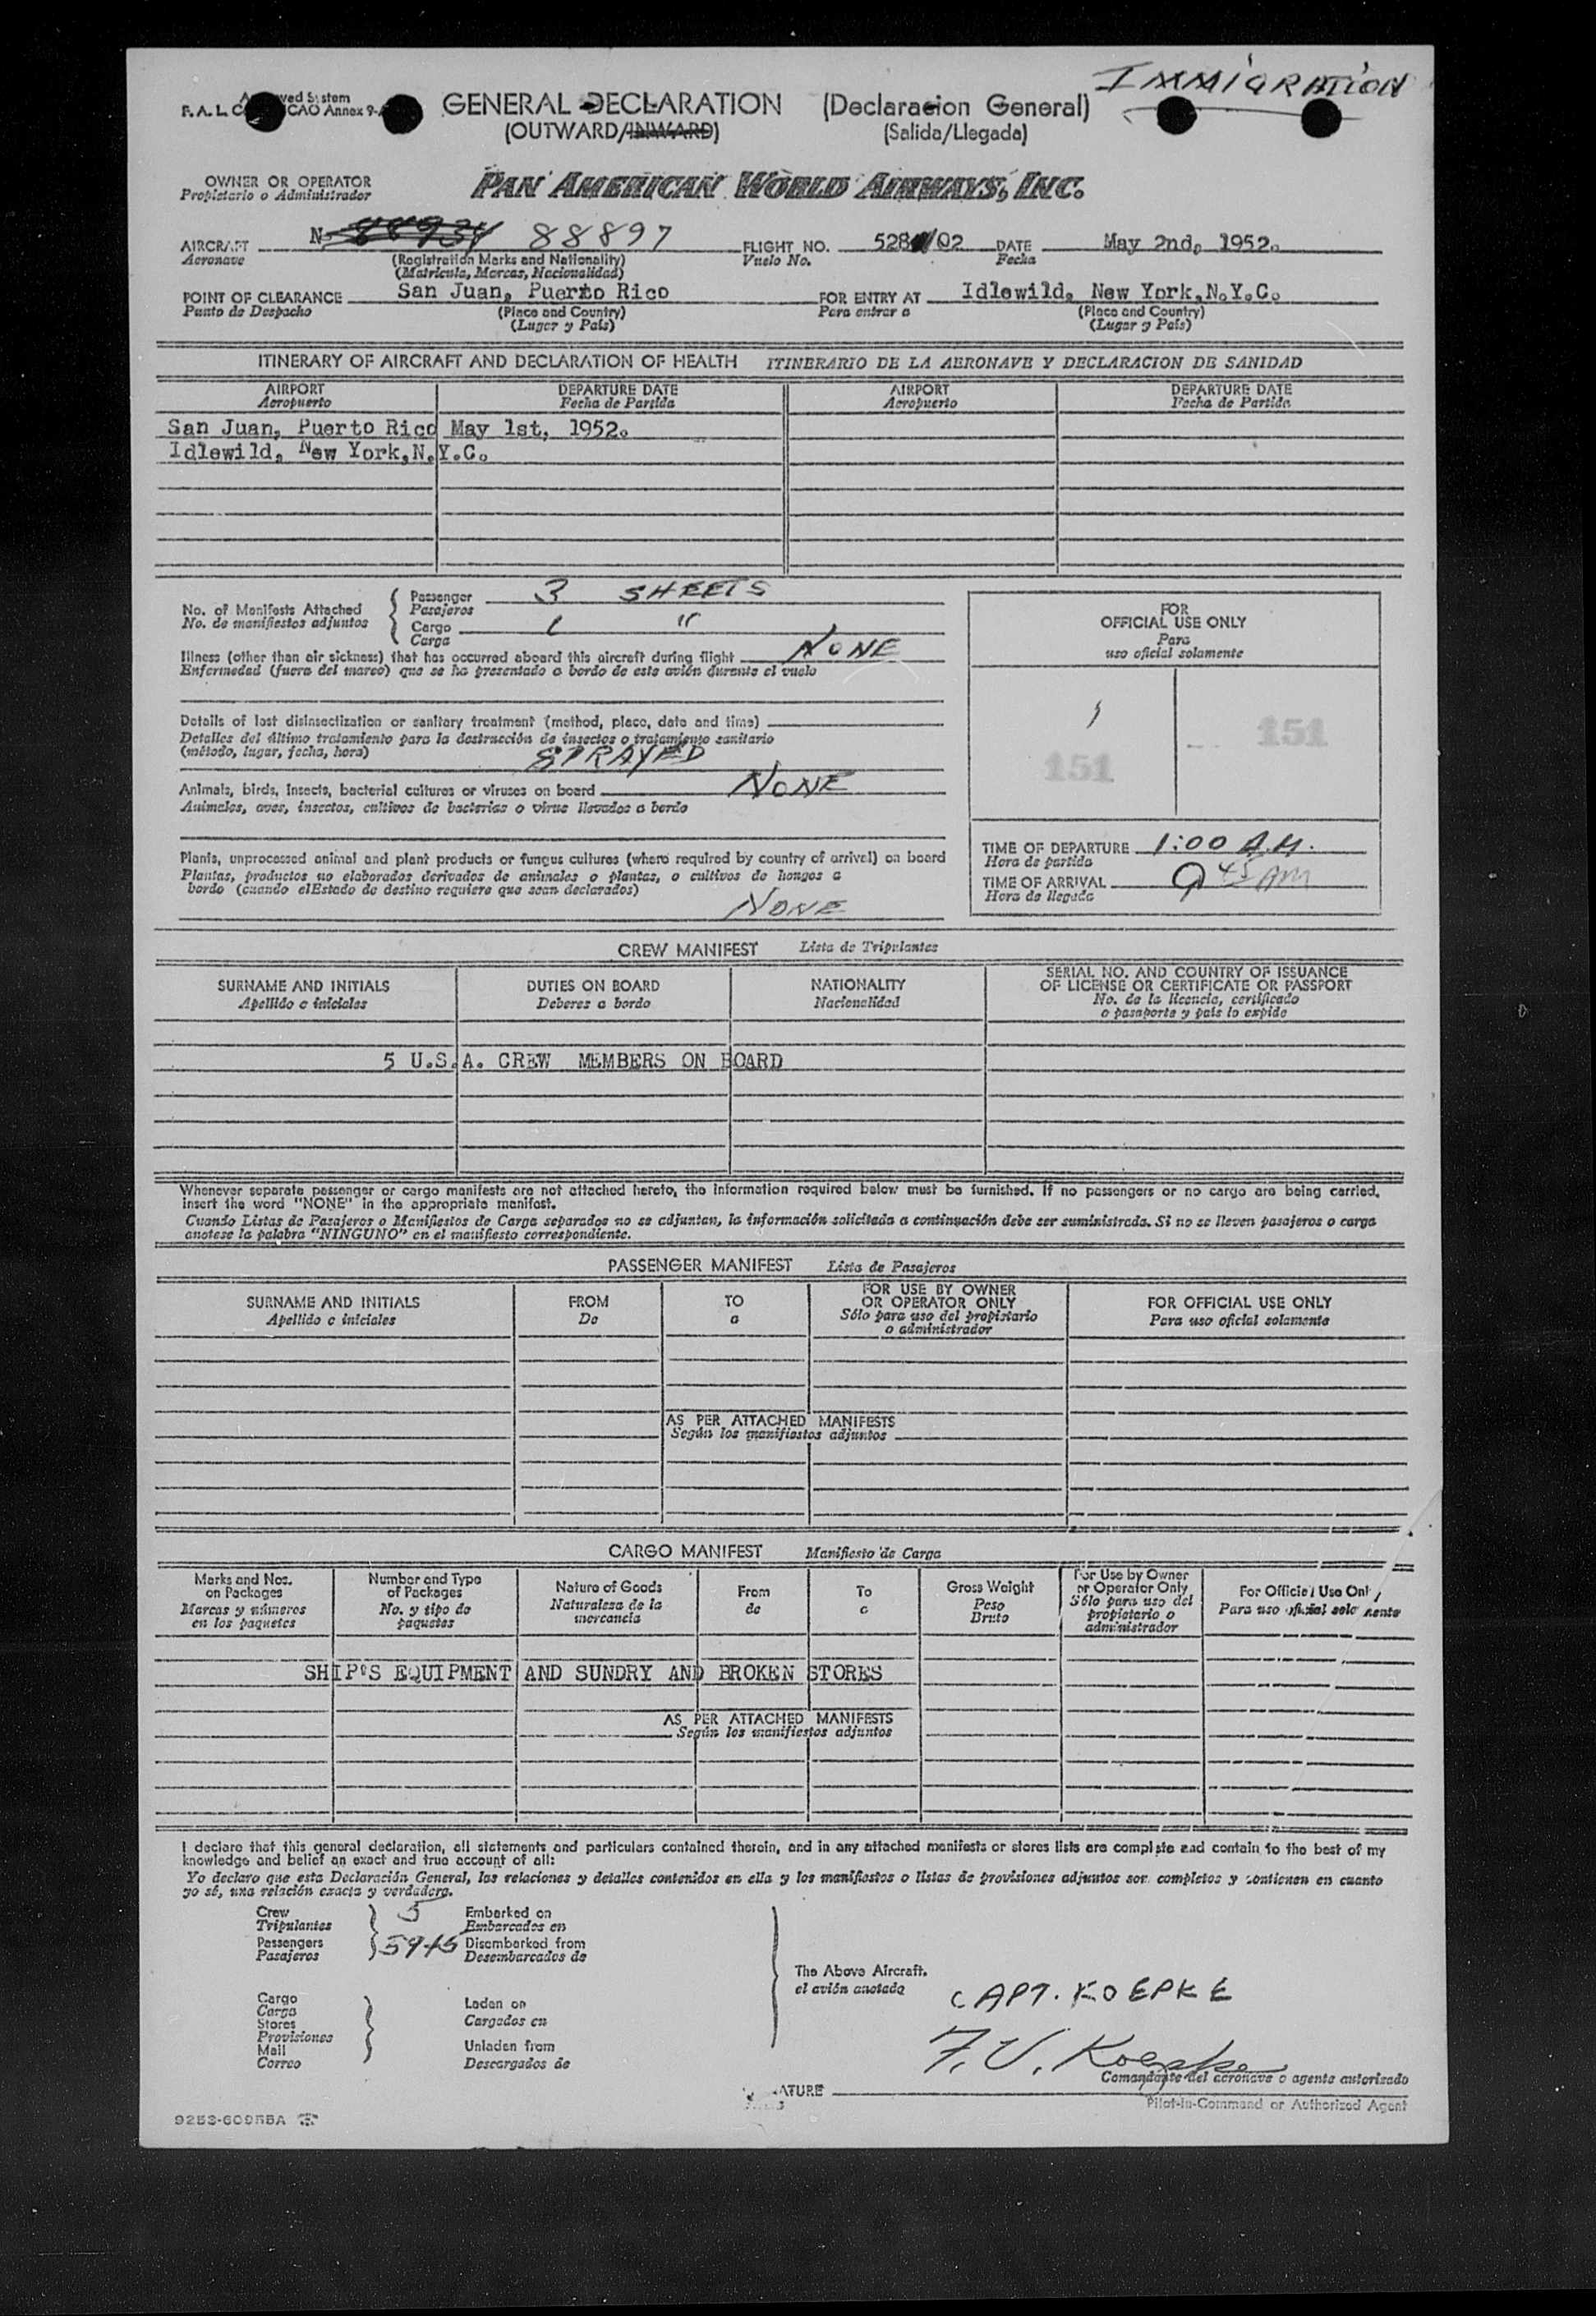 IMMIGRATION
GENERAL DECLARATION (Declaracion General)
(OUTWARD/INWARD) (Salida/Llegada)
OWNER OR OPERATOR
Propietario o Administrador
PAN AMERICAN WORLD AIRWAYS, INC.
AIRCRAFT N- 88934 88897 FLIGHT NO. 528 /02 DATE May 2nd, 1952.
Aeronave (Registration Marks and Nationality) Vuelo No. Fecha
(Matricula, Marcas, Nacionalidad)
POINT OF CLEARANCE San Juan, Puerto Rico FOR ENTRY AT Idlewild, New York,N.Y.C.
Punto de Despacho (Place and Country) Para entrar a (Place and Country)
(Lugar y País) (Lugar y País)
ITINERARY OF AIRCRAFT AND DECLARATION OF HEALTH ITINERARIO DE LA AERONAVE Y DECLARACION DE SANIDAD
AIRPORT DEPARTURE DATE AIRPORT DEPARTURE DATE
Aeropuerto Fecha de Partida Aeropuerto Fecha de Partida
San Juan, Puerto Rico May 1st, 1952.
Idlewild, New York,N.Y.C.
No. of Manifests Attached
No. de manifiestos adjuntos
Passenger 3 SHEETS
Pasajeros
Cargo 1 "
Carga
Illness (other than air sickness) that has occurred aboard this aircraft during flight NONE
Enfermedad (fuera del mareo) que se ha presentado a bordo de este avión durante el vuelo
Details of last disinsectization or sanitary treatment (method, place, date and time)
Detalles del último tratamiento para la destrucción de insectos o tratamiento sanitario
(método, lugar, fecha, hora) SPRAYED
Animals, birds, insects, bacterial cultures or viruses on board NONE
Animales, aves, insectos, cultivos de bacterias o virus llevados a bordo
Plants, unprocessed animal and plant products or fungus cultures (where required by country of arrival) on board
Plantas, productos no elaborados derivados de animales o plantas, o cultivos de hongos a
bordo (cuando elEstado de destino requiere que sean declarados)
NONE
FOR
OFFICIAL USE ONLY
Para
uso oficial solamente
151
151
TIME OF DEPARTURE 1:00 A.M.
Hora de partida
TIME OF ARRIVAL 9 45 AM
Hora de llegada
CREW MANIFEST Lista de Tripulantes
SURNAME AND INITIALS DUTIES ON BOARD NATIONALITY SERIAL NO. AND COUNTRY OF ISSUANCE
Apellido e iniciales Deberes a bordo Nacionalidad OF LICENSE OR CERTIFICATE OR PASSPORT
No. de la licencia, certificado
o pasaporte y país lo expide
5 U.S.A. CREW MEMBERS ON BOARD
Whenever separate passenger or cargo manifests are not attached hereto, the information required below must be furnished. If no passengers or no cargo are being carried,
insert the word "NONE" in the appropriate manifest.
Cuando Listas de Pasajeros o Manifiestos de Carga separados no se adjuntan, la información solicitada a continuación debe ser suministrada. Si no se lleven pasajeros o carga
anotese la palabra "NINGUNO" en el manifiesto correspondiente.
PASSENGER MANIFEST Lista de Pasajeros
SURNAME AND INITIALS FROM TO FOR USE BY OWNER FOR OFFICIAL USE ONLY
Apellido e iniciales De a OR OPERATOR ONLY Para uso oficial solamente
Sólo para uso del propietario
o administrador
AS PER ATTACHED MANIFESTS
Según los manifiestos adjuntos
CARGO MANIFEST Manifiesto de Carga
Marks and Nos. on Packages
Marcas y números en los paquetes
Number and Type of Packages
No. y tipo de paquetes
Nature of Goods
Naturaleza de la mercancia
From
de
To
a
Gross Weight
Peso Bruto
For Use by Owner or Operator Only
Sólo para uso del propietario o administrador
For Official Use Only
Para uso oficial solamente
SHIP'S EQUIPMENT AND SUNDRY AND BROKEN STORES
AS PER ATTACHED MANIFESTS
Según los manifiestos adjuntos
I declare that this general declaration, all statements and particulars contained therein, and in any attached manifests or stores lists are complete and contain to the best of my
knowledge and belief an exact and true account of all:
Yo declaro que esta Declaración General, las relaciones y detalles contenidos en ella y los manifiestos o listas de provisiones adjuntos son completos y contienen en cuanto
yo sé, una relación exacta y verdadera.
Crew 5 Embarked on
Tripulantes Embarcados en
Passengers 59+5 Disembarked from
Pasajeros Desembarcados de
Cargo
Carga
Stores
Provisiones
Mail
Correo
Laden on
Cargados en
Unladen from
Descargados de
The Above Aircraft.
el avión anotado
CAPT. KOEPKE
F. V. Koepke
Comandante del aeronave o agente autorizado
Pilot-in-Command or Authorized Agent